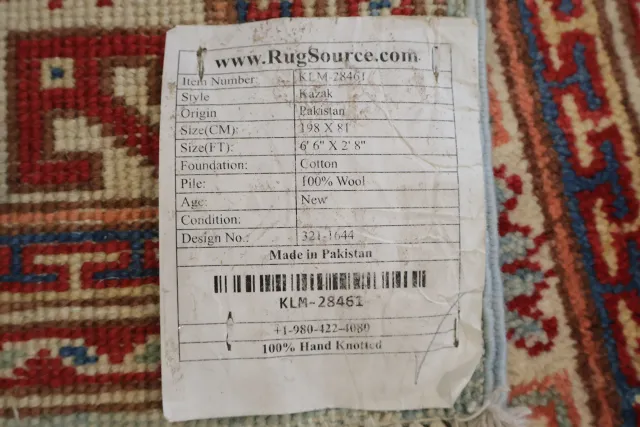 www.RugSource.com
Item Number: KLM-28461
Style Kazak
Origin Pakistan
Size(CM): 198 X 81
Size(FT): 6' 6" X 2' 8"
Foundation: Cotton
Pile: 100% Wool
Age: New
Condition:
Design No.: 321-1644
Made in Pakistan
KLM-28461
+1-980-422-4080
100% Hand Knotted